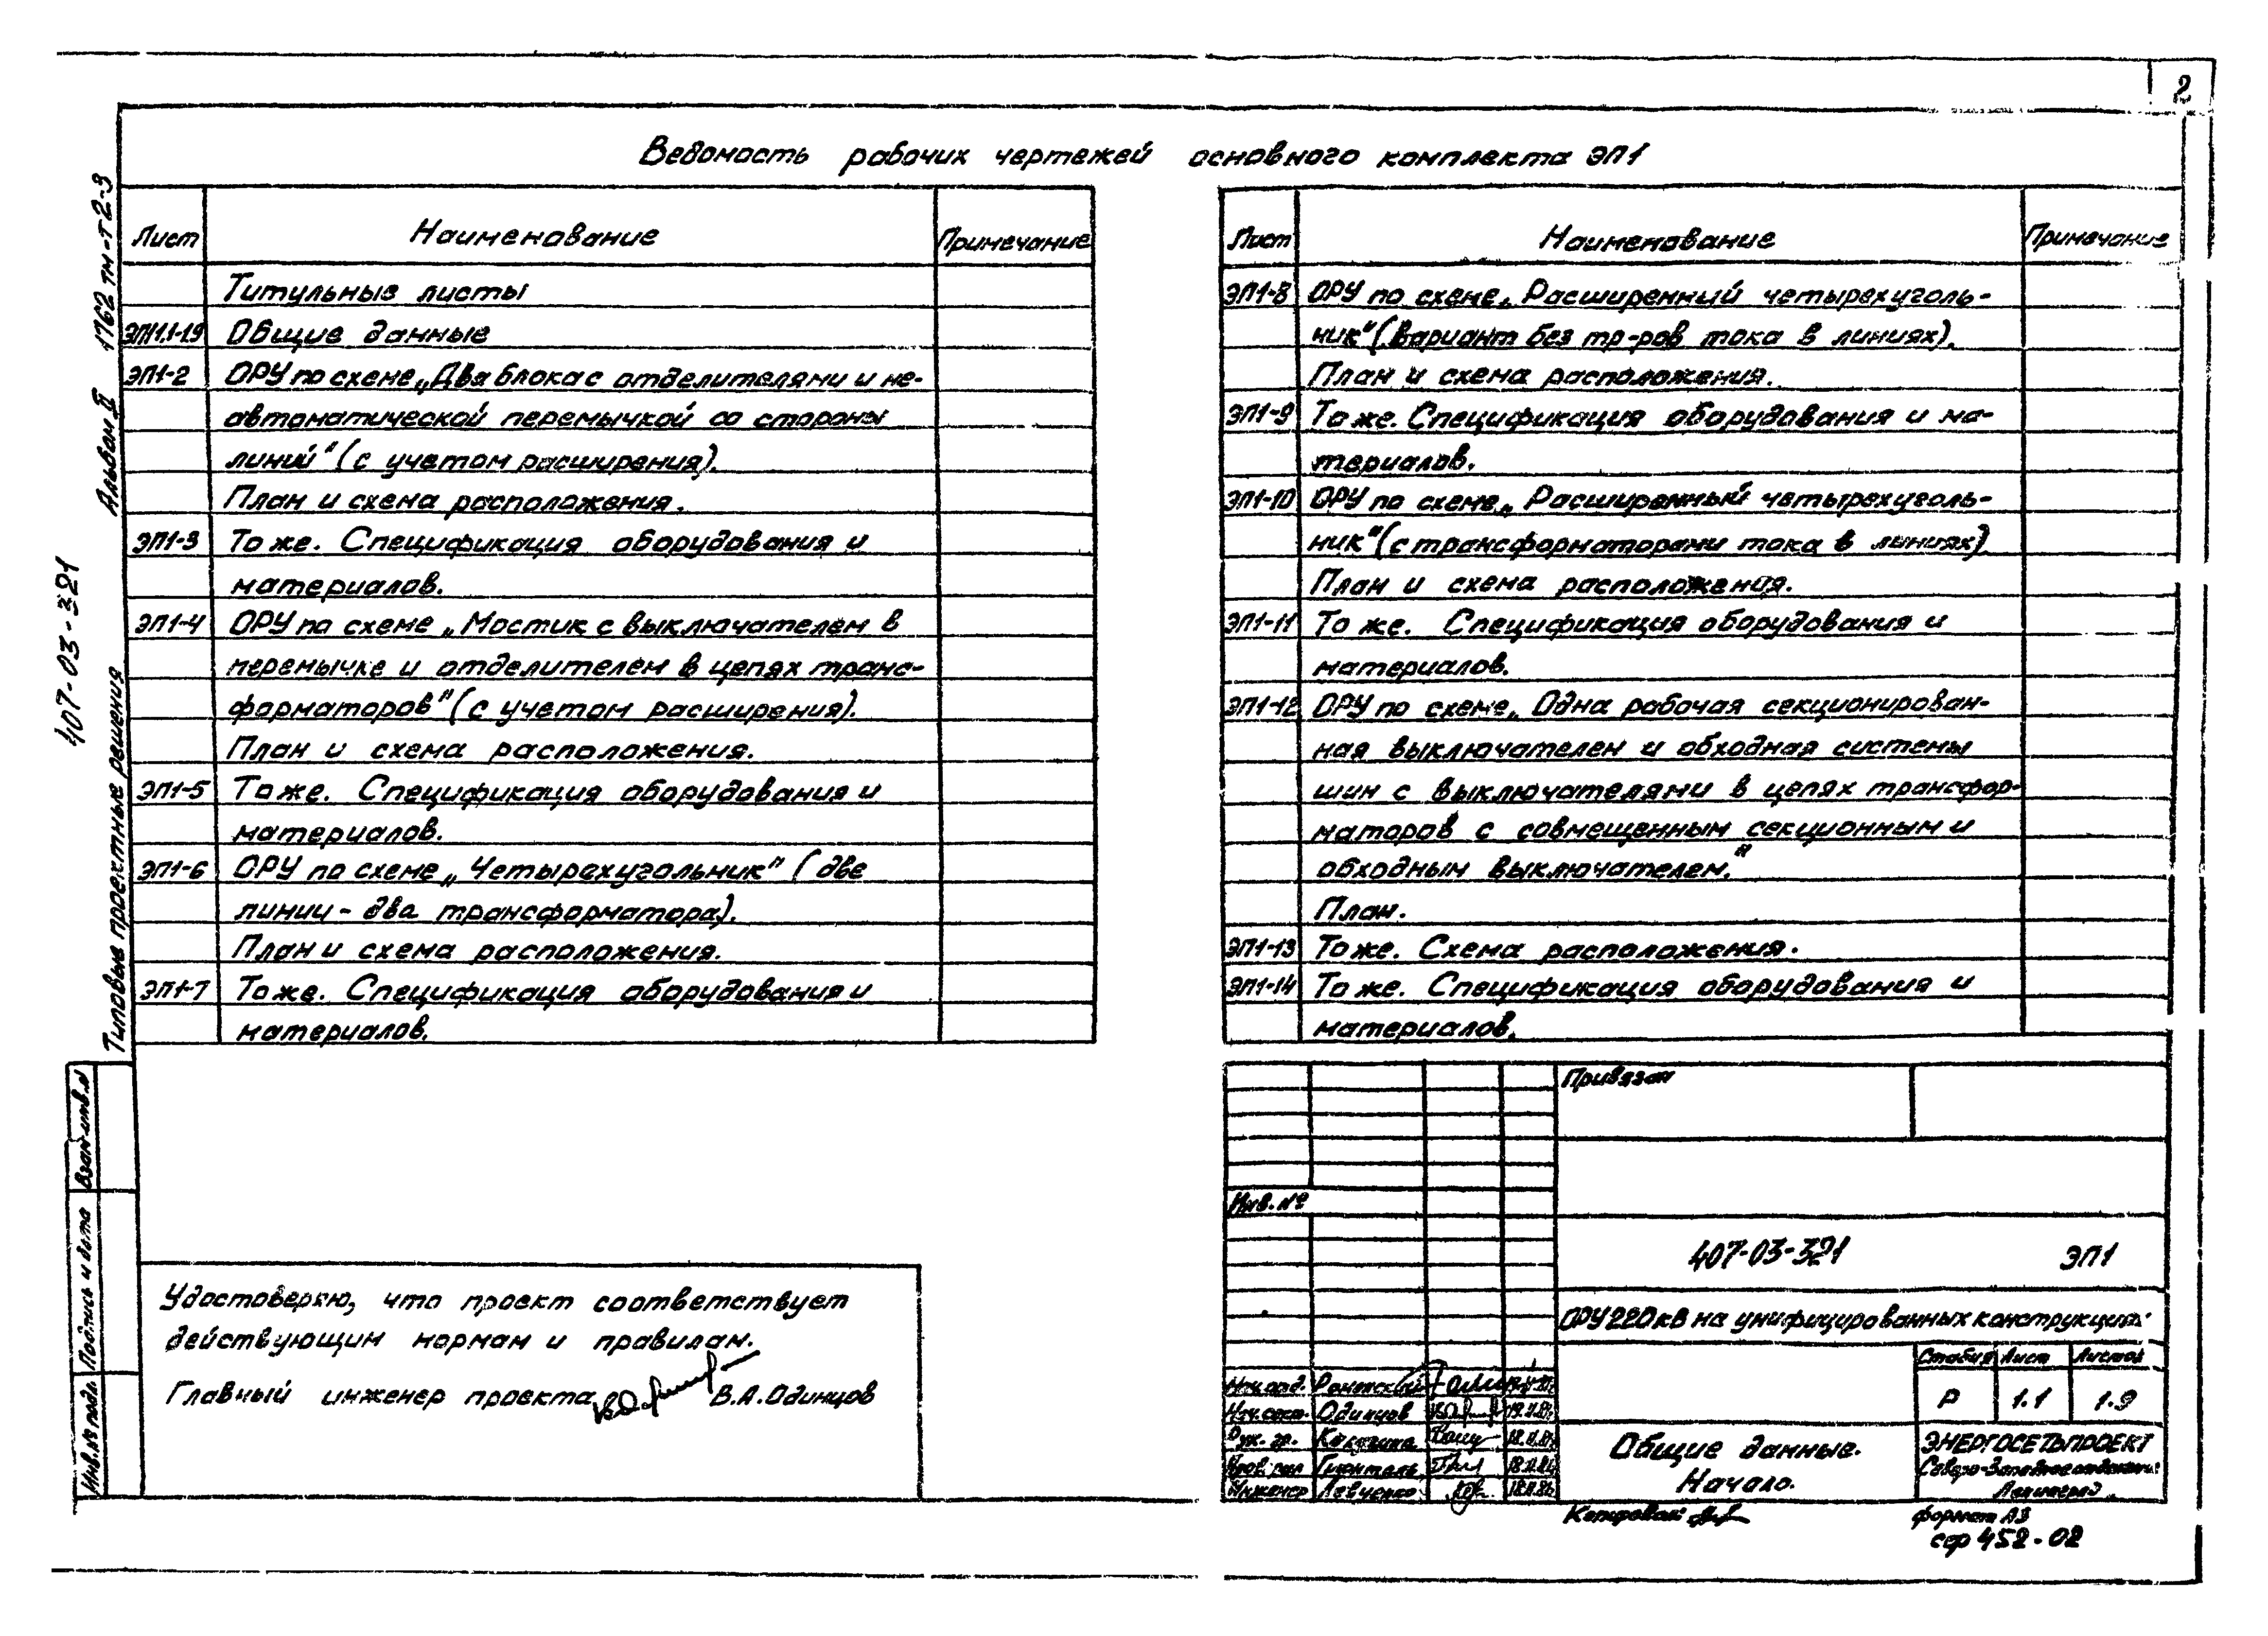 2
Ведомость рабочих чертежей основного комплекта ЭП1
Лист Наименование Примечание
Титульные листы
ЭП11.1-1.9 Общие данные
ЭП1-2 ОРУ по схеме „Два блока с отделителями и не-
автоматической перемычкой со стороны
линий" (с учетом расширения).
План и схема расположения.
ЭП1-3 То же. Спецификация оборудования и
материалов.
ЭП1-4 ОРУ по схеме „Мостик с выключателем в
перемычке и отделителем в цепях транс-
форматоров" (с учетом расширения).
План и схема расположения.
ЭП1-5 То же. Спецификация оборудования и
материалов.
ЭП1-6 ОРУ по схеме „Четырехугольник" (две
линии - два трансформатора).
План и схема расположения.
ЭП1-7 То же. Спецификация оборудования и
материалов.
Лист Наименование Примечание
ЭП1-8 ОРУ по схеме „Расширенный четырехуголь-
ник" (вариант без тр-ров тока в линиях).
План и схема расположения.
ЭП1-9 То же. Спецификация оборудования и ма-
териалов.
ЭП1-10 ОРУ по схеме „Расширенный четырехуголь-
ник" (с трансформаторами тока в линиях)
План и схема расположения.
ЭП1-11 То же. Спецификация оборудования и
материалов.
ЭП1-12 ОРУ по схеме „Одна рабочая секционирован-
ная выключателем и обходная системы
шин с выключателями в цепях трансфор-
маторов с совмещенным секционным и
обходным выключателем."
План.
ЭП1-13 То же. Схема расположения.
ЭП1-14 То же. Спецификация оборудования и
материалов.
407-03-321
Типовые проектные решения Альбом II 1762 тм-Т2-3
Взам.инв.№
Подпись и дата
Инв.№ подл.
Удостоверяю, что проект соответствует
действующим нормам и правилам.
Главный инженер проекта В.А.Одинцов
Привязан
Инв. №
407-03-321 ЭП1
ОРУ 220 кВ на унифицированных конструкциях
Стадия Лист Листов
Р 1.1 1.9
Нач.отд. Роменский
Одинцов
Рук. гр.
Инженер Левченко
Общие данные.
Начало.
ЭНЕРГОСЕТЬПРОЕКТ
Северо-Западное отделение
Ленинград
Копировал
формат А3
сф 452-02